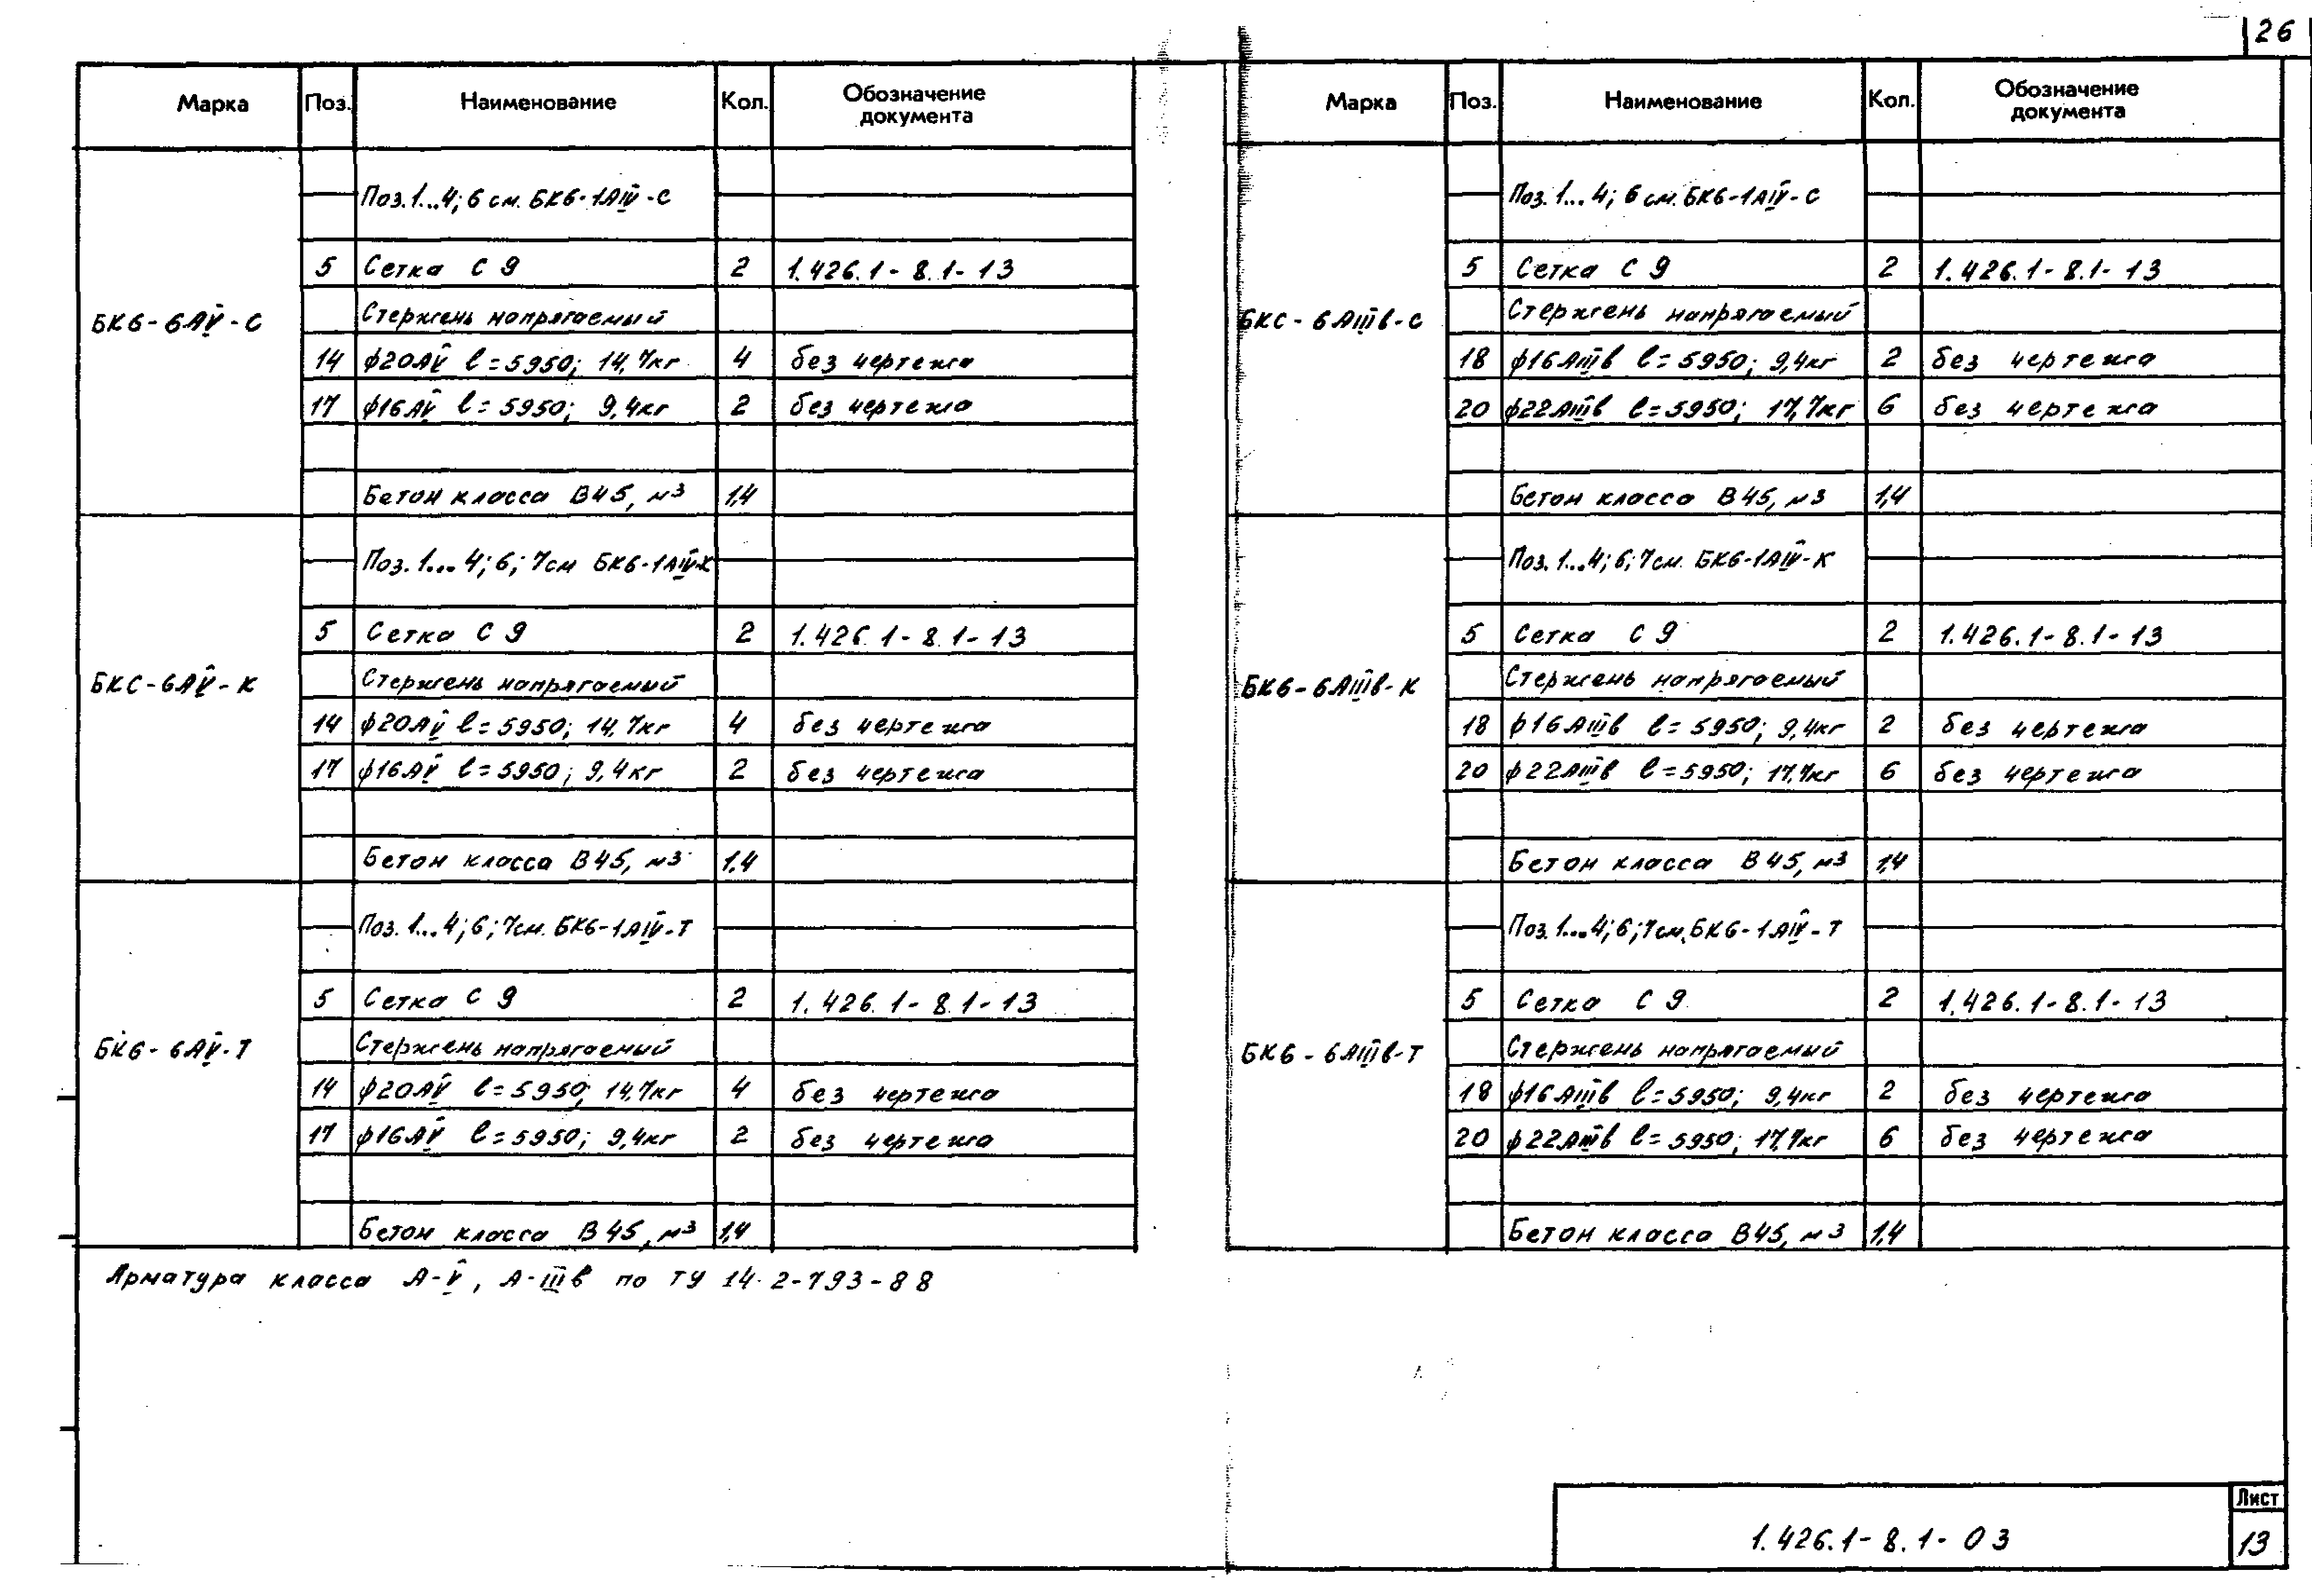 26
Марка Поз. Наименование Кол. Обозначение документа
Поз. 1...4; 6 см. БК6-1АIV-С
5 Сетка С 9 2 1.426.1-8.1-13
БК6-6АV-С
Стержень напрягаемый
14 ф20АV l=5950; 14,7кг 4 без чертежа
17 ф16АV l=5950; 9,4кг 2 без чертежа
Бетон класса В45, м3 1,4
Поз. 1...4; 6; 7 см БК6-1АIV-К
5 Сетка С 9 2 1.426.1-8.1-13
БКС-6АV-К
Стержень напрягаемый
14 ф20АV l=5950; 14,7кг 4 без чертежа
17 ф16АV l=5950; 9,4кг 2 без чертежа
Бетон класса В45, м3 1,4
Поз. 1...4; 6; 7 см. БК6-1АIV-Т
5 Сетка С 9 2 1.426.1-8.1-13
БК6-6АV-Т
Стержень напрягаемый
14 ф20АV l=5950; 14,7кг 4 без чертежа
17 ф16АV l=5950; 9,4кг 2 без чертежа
Бетон класса В45, м3 1,4
Арматура класса А-V, А-IIIв по ТУ 14-2-793-88
Марка Поз. Наименование Кол. Обозначение документа
Поз. 1...4; 6 см. БК6-1АIV-С
5 Сетка С 9 2 1.426.1-8.1-13
БКС-6АIIIв-С
Стержень напрягаемый
18 ф16АIIIв l=5950; 9,4кг 2 без чертежа
20 ф22АIIIв l=5950; 17,7кг 6 без чертежа
Бетон класса В45, м3 1,4
Поз. 1...4; 6; 7 см. БК6-1АIV-К
5 Сетка С 9 2 1.426.1-8.1-13
БК6-6АIIIв-К
Стержень напрягаемый
18 ф16АIIIв l=5950; 9,4кг 2 без чертежа
20 ф22АIIIв l=5950; 17,7кг 6 без чертежа
Бетон класса В45, м3 1,4
Поз. 1...4; 6; 7 см. БК6-1АIV-Т
5 Сетка С 9 2 1.426.1-8.1-13
БК6-6АIIIв-Т
Стержень напрягаемый
18 ф16АIIIв l=5950; 9,4кг 2 без чертежа
20 ф22АIIIв l=5950; 17,7кг 6 без чертежа
Бетон класса В45, м3 1,4
1.426.1-8.1-03
Лист
13